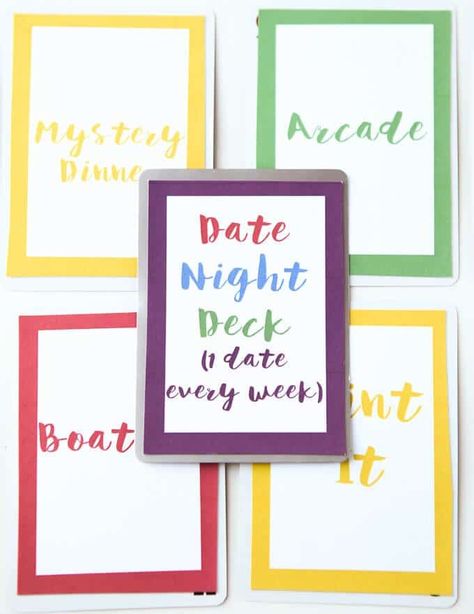 Mystery
Dinne
Arcade
Date
Night
Deck
(1 date
every week)
Boat
int
It